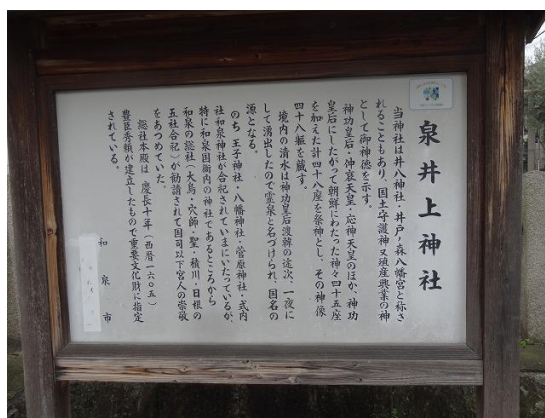 泉井上神社
当神社は井八神社・井戸ノ森八幡宮と称さ
れることもあり、国土守護神又殖産興業の神
として御神徳を示す。
神功皇后・仲哀天皇・応神天皇のほか、神功
皇后にしたがって朝鮮にわたった神々四十五座
を加えた計四十八座を祭神とし、その神像
四十八軀を蔵す。
境内の清水は神功皇后渡韓の途次、一夜に
して湧出したので霊泉と名づけられ、国名の
源となる。
のち 王子神社・八幡神社・菅原神社・式内
社和泉神社が合祀されていまにいたっているが、
特に和泉国衙内の神社であるところから
和泉の総社（大鳥・穴師・聖・積川・日根の
五社合祀）が勧請されて国司以下宮人の崇敬
をあつめていた。
総社本殿は 慶長十年（西暦一六〇五）
豊臣秀頼が建立したもので重要文化財に指定
されている。
和泉市